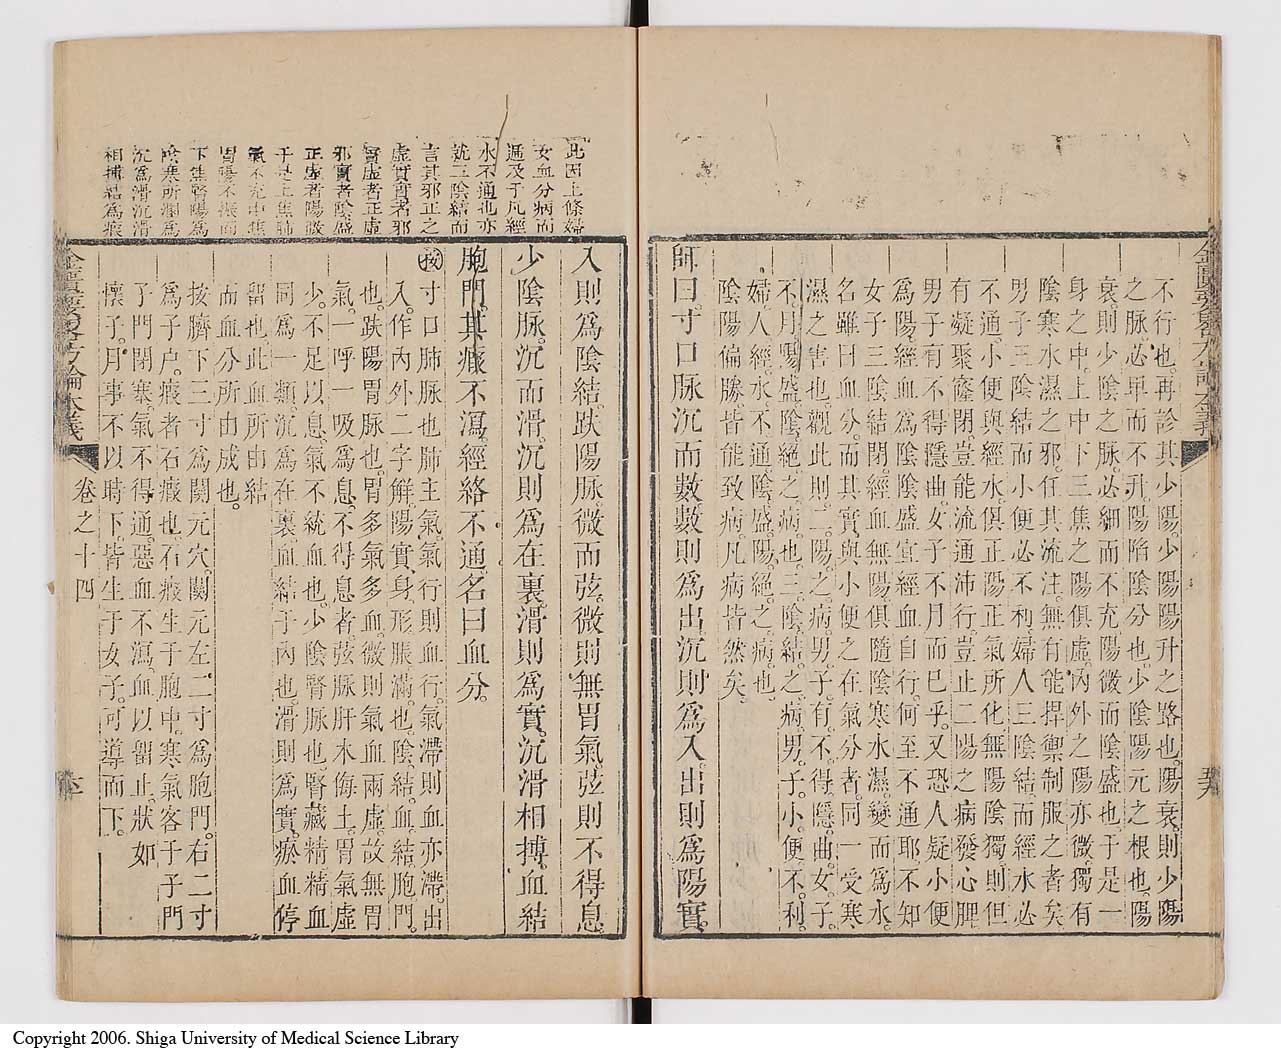 不行也。再診其少陽。少陽陽升之路也。陽衰則少陽
之脉。必卑而不升。陽陷陰分也。少陰陽元之根也。陽
衰則少陰之脉。必細而不充。陽微而陰盛也。于是一
身之中。上中下三焦之陽俱虛。內外之陽亦微。獨有
陰寒水濕之邪。任其流注。無有能捍禦制服之者矣
男子三陰結而小便必不利。婦人三陰結而經水必
不通。小便與經水。俱正陽正氣所化。無陽陰獨。則但
有凝聚窒閉。豈能流通沛行。豈止二陽之病發心脾
男子有不得隱曲。女子不月而已乎。又恐人疑小便
爲陽。經血爲陰。陰盛宜經血自行。何至不通耶。不知
女子三陰結閉。經血無陽。俱隨陰寒水濕。變而爲水。
名雖曰血分。而其實與小便之在氣分者。同一受寒
濕之害也。觀此則二陽之病。男子有不得隱曲。女子
不月。陽盛陰絕之病也。三陰結之病。男子小便不利
婦人經水不通。陰盛陽絕之病也。
陰陽偏勝。皆能致病。凡病皆然矣。
師曰。寸口脉沉而數。數則爲出。沉則爲入。出則爲陽實。
金匱要畧方論本義
入則爲陰結。趺陽脉微而弦。微則無胃氣。弦則不得息。
少陰脉。沉而滑。沉則爲在裏。滑則爲實。沉滑相搏。血結
胞門。其瘕不瀉。經絡不通。名曰血分。
按寸口肺脉也肺主氣。氣行則血行。氣滯則血亦滯。出
入。作內外二字解。陽實身形脹滿。也。陰結。血結胞門。
也。趺陽胃脉也。胃多氣多血。微則氣血兩虛。故無胃
氣。一呼一吸爲息。不得息者。弦脉肝木侮土。胃氣虛
少。不足以息。氣不統血也。少陰腎脉也。腎藏精。精血
同爲一類。沉爲在裏。血結于內也。滑則爲實。瘀血停
留也。此血所由結
而血分所由成也。
按臍下三寸爲關元穴。關元左二寸爲胞門。右二寸
爲子户。瘕者石瘕也。石瘕生于胞中。寒氣客于子門
子門閉塞。氣不得通。惡血不瀉。血以留止。狀如
懷子。月事不以時下。皆生于女子。可導而下。
此因上條婦
女血分病而
遞及于凡經
水不通也亦
就三陰結而
言其邪正之
虛實實者邪
實虛者正虛
邪實者陰盛
正虛者陽微
于是上焦肺
氣不充中焦
胃陽不振而
下焦腎陽爲
陰寒所凝爲
沉爲滑沉滑
相搏結爲瘕
金匱要畧方論本義
卷之十四